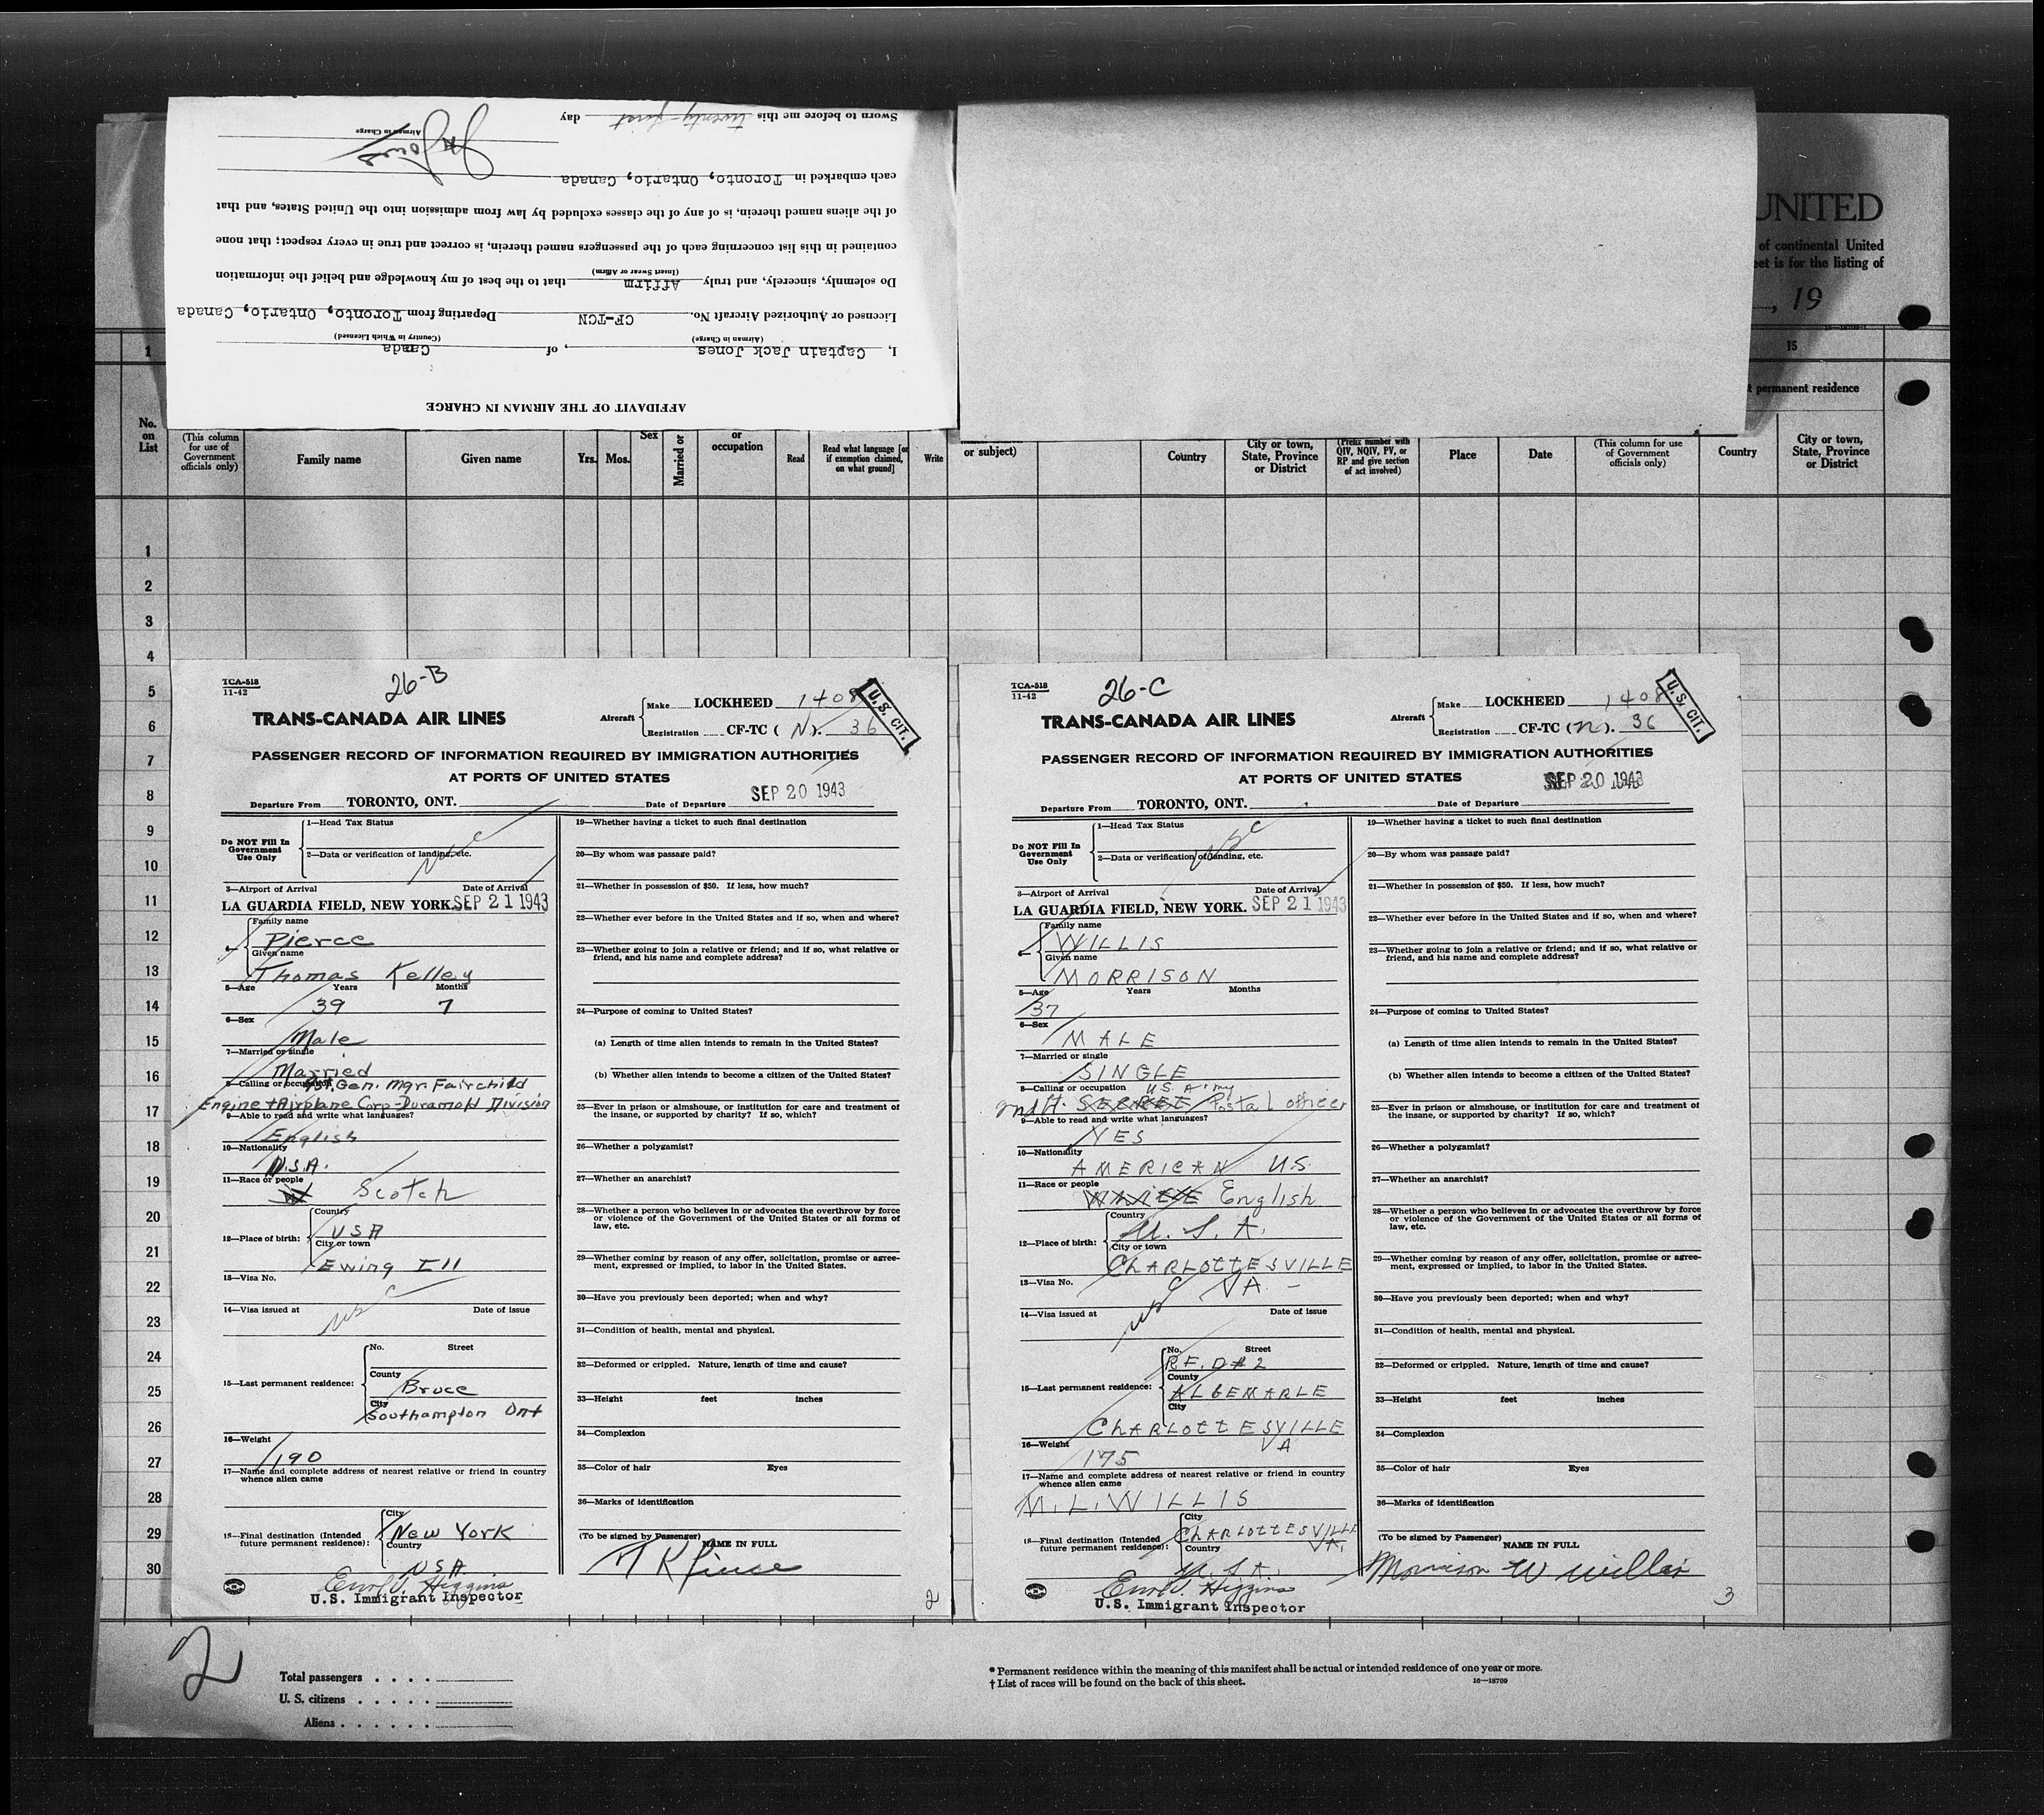 AFFIDAVIT OF THE AIRMAN IN CHARGE
I, Captain Jack Jones, of Canada
(Airman in Charge) (Country in Which Licensed)
Licensed or Authorized Aircraft No. CF-TCN Departing from Toronto, Ontario, Canada
Do solemnly, sincerely, and truly Affirm that to the best of my knowledge and belief the information
(Insert Swear or Affirm)
contained in this list concerning each of the passengers named therein, is correct and true in every respect; that none
of the aliens named therein, is of any of the classes excluded by law from admission into the United States, and that
each embarked in Toronto, Ontario, Canada
Jones
Airman in Charge
Sworn to before me this twenty-first day
UNITED
of continental United
eet is for the listing of
, 19
1
15
permanent residence
No. on List
(This column for use of Government officials only)
Family name
Given name
Yrs.
Mos.
Sex
Married or
or occupation
Read
Read what language [or if exemption claimed, on what ground]
Write
or subject)
Country
City or town, State, Province or District
(Prefix number with QIV, NQIV, PV, or RP and give section of act involved)
Place
Date
(This column for use of Government officials only)
Country
City or town, State, Province or District
1
2
3
4
5
6
7
8
9
10
11
12
13
14
15
16
17
18
19
20
21
22
23
24
25
26
27
28
29
30
TCA-518
11-42
26-B
TRANS-CANADA AIR LINES
Aircraft
Make LOCKHEED 1408
Registration CF-TC (N). 36
U.S. CIT.
PASSENGER RECORD OF INFORMATION REQUIRED BY IMMIGRATION AUTHORITIES
AT PORTS OF UNITED STATES
Departure From TORONTO, ONT. Date of Departure SEP 20 1943
Do NOT Fill In Government Use Only
1—Head Tax Status
2—Data or verification of landing, etc.
USC
3—Airport of Arrival Date of Arrival
LA GUARDIA FIELD, NEW YORK. SEP 21 1943
Family name
Pierce
Given name
Thomas Kelley
5—Age Years Months
39 7
6—Sex
Male
7—Married or single
Married
8—Calling or occupation Gen. Mgr. Fairchild
Engine + Airplane Corp-Duramold Division
9—Able to read and write what languages?
English
10—Nationality
U.S.A.
11—Race or people
Scotch
12—Place of birth:
Country
USA
City or town
Ewing Ill
13—Visa No.
USC
14—Visa issued at Date of issue
15—Last permanent residence:
No. Street
County
Bruce
City
Southampton Ont
16—Weight
190
17—Name and complete address of nearest relative or friend in country whence alien came
18—Final destination (Intended future permanent residence):
City
New York
Country
USA
U.S. Immigrant Inspector
19—Whether having a ticket to such final destination
20—By whom was passage paid?
21—Whether in possession of $50. If less, how much?
22—Whether ever before in the United States and if so, when and where?
23—Whether going to join a relative or friend; and if so, what relative or
friend, and his name and complete address?
24—Purpose of coming to United States?
(a) Length of time alien intends to remain in the United States?
(b) Whether alien intends to become a citizen of the United States?
25—Ever in prison or almshouse, or institution for care and treatment of
the insane, or supported by charity? If so, which?
26—Whether a polygamist?
27—Whether an anarchist?
28—Whether a person who believes in or advocates the overthrow by force
or violence of the Government of the United States or all forms of
law, etc.
29—Whether coming by reason of any offer, solicitation, promise or agree-
ment, expressed or implied, to labor in the United States.
30—Have you previously been deported; when and why?
31—Condition of health, mental and physical.
32—Deformed or crippled. Nature, length of time and cause?
33—Height feet inches
34—Complexion
35—Color of hair Eyes
36—Marks of identification
(To be signed by Passenger) NAME IN FULL
T K Pierce
2
TCA-518
11-42
26-C
TRANS-CANADA AIR LINES
Aircraft
Make LOCKHEED 1408
Registration CF-TC (N). 36
U.S. CIT.
PASSENGER RECORD OF INFORMATION REQUIRED BY IMMIGRATION AUTHORITIES
AT PORTS OF UNITED STATES
Departure From TORONTO, ONT. Date of Departure SEP 20 1943
Do NOT Fill In Government Use Only
1—Head Tax Status
2—Data or verification of landing, etc.
USC
3—Airport of Arrival Date of Arrival
LA GUARDIA FIELD, NEW YORK. SEP 21 1943
Family name
WILLIS
Given name
MORRISON
5—Age Years Months
37
6—Sex
MALE
7—Married or single
SINGLE
8—Calling or occupation U.S. Army
2nd Lt. Postal officer
9—Able to read and write what languages?
YES
10—Nationality
AMERICAN U.S.
11—Race or people
WHITE English
12—Place of birth:
Country
U. S. A.
City or town
CHARLOTTESVILLE
13—Visa No. VA —
USC
14—Visa issued at Date of issue
15—Last permanent residence:
No. Street
R.F.D # 2
County
ALBEMARLE
City
CHARLOTTESVILLE
VA
16—Weight
175
17—Name and complete address of nearest relative or friend in country whence alien came
M. L. WILLIS
18—Final destination (Intended future permanent residence):
City
CHARLOTTESVILLE
VA.
Country
U. S. A.
U.S. Immigrant Inspector
19—Whether having a ticket to such final destination
20—By whom was passage paid?
21—Whether in possession of $50. If less, how much?
22—Whether ever before in the United States and if so, when and where?
23—Whether going to join a relative or friend; and if so, what relative or
friend, and his name and complete address?
24—Purpose of coming to United States?
(a) Length of time alien intends to remain in the United States?
(b) Whether alien intends to become a citizen of the United States?
25—Ever in prison or almshouse, or institution for care and treatment of
the insane, or supported by charity? If so, which?
26—Whether a polygamist?
27—Whether an anarchist?
28—Whether a person who believes in or advocates the overthrow by force
or violence of the Government of the United States or all forms of
law, etc.
29—Whether coming by reason of any offer, solicitation, promise or agree-
ment, expressed or implied, to labor in the United States.
30—Have you previously been deported; when and why?
31—Condition of health, mental and physical.
32—Deformed or crippled. Nature, length of time and cause?
33—Height feet inches
34—Complexion
35—Color of hair Eyes
36—Marks of identification
(To be signed by Passenger) NAME IN FULL
Morrison W Willis
3
2
Total passengers . . . .
U. S. citizens . . . . .
Aliens . . . . . .
* Permanent residence within the meaning of this manifest shall be actual or intended residence of one year or more.
† List of races will be found on the back of this sheet.
16—18709